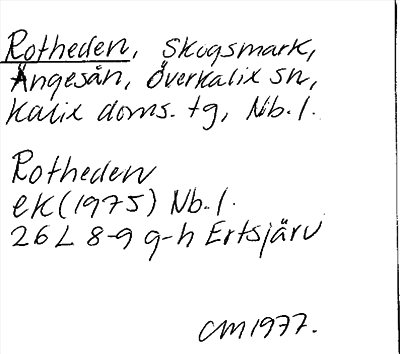 Rotheden, Skogsmark,
Ängesån, Överkalix sn,
Kalix doms. tg, Nb. l.
Rotheden
ek (1975) Nb. l.
26 L 8-9 g-h Ertsjärv
CM 1977.